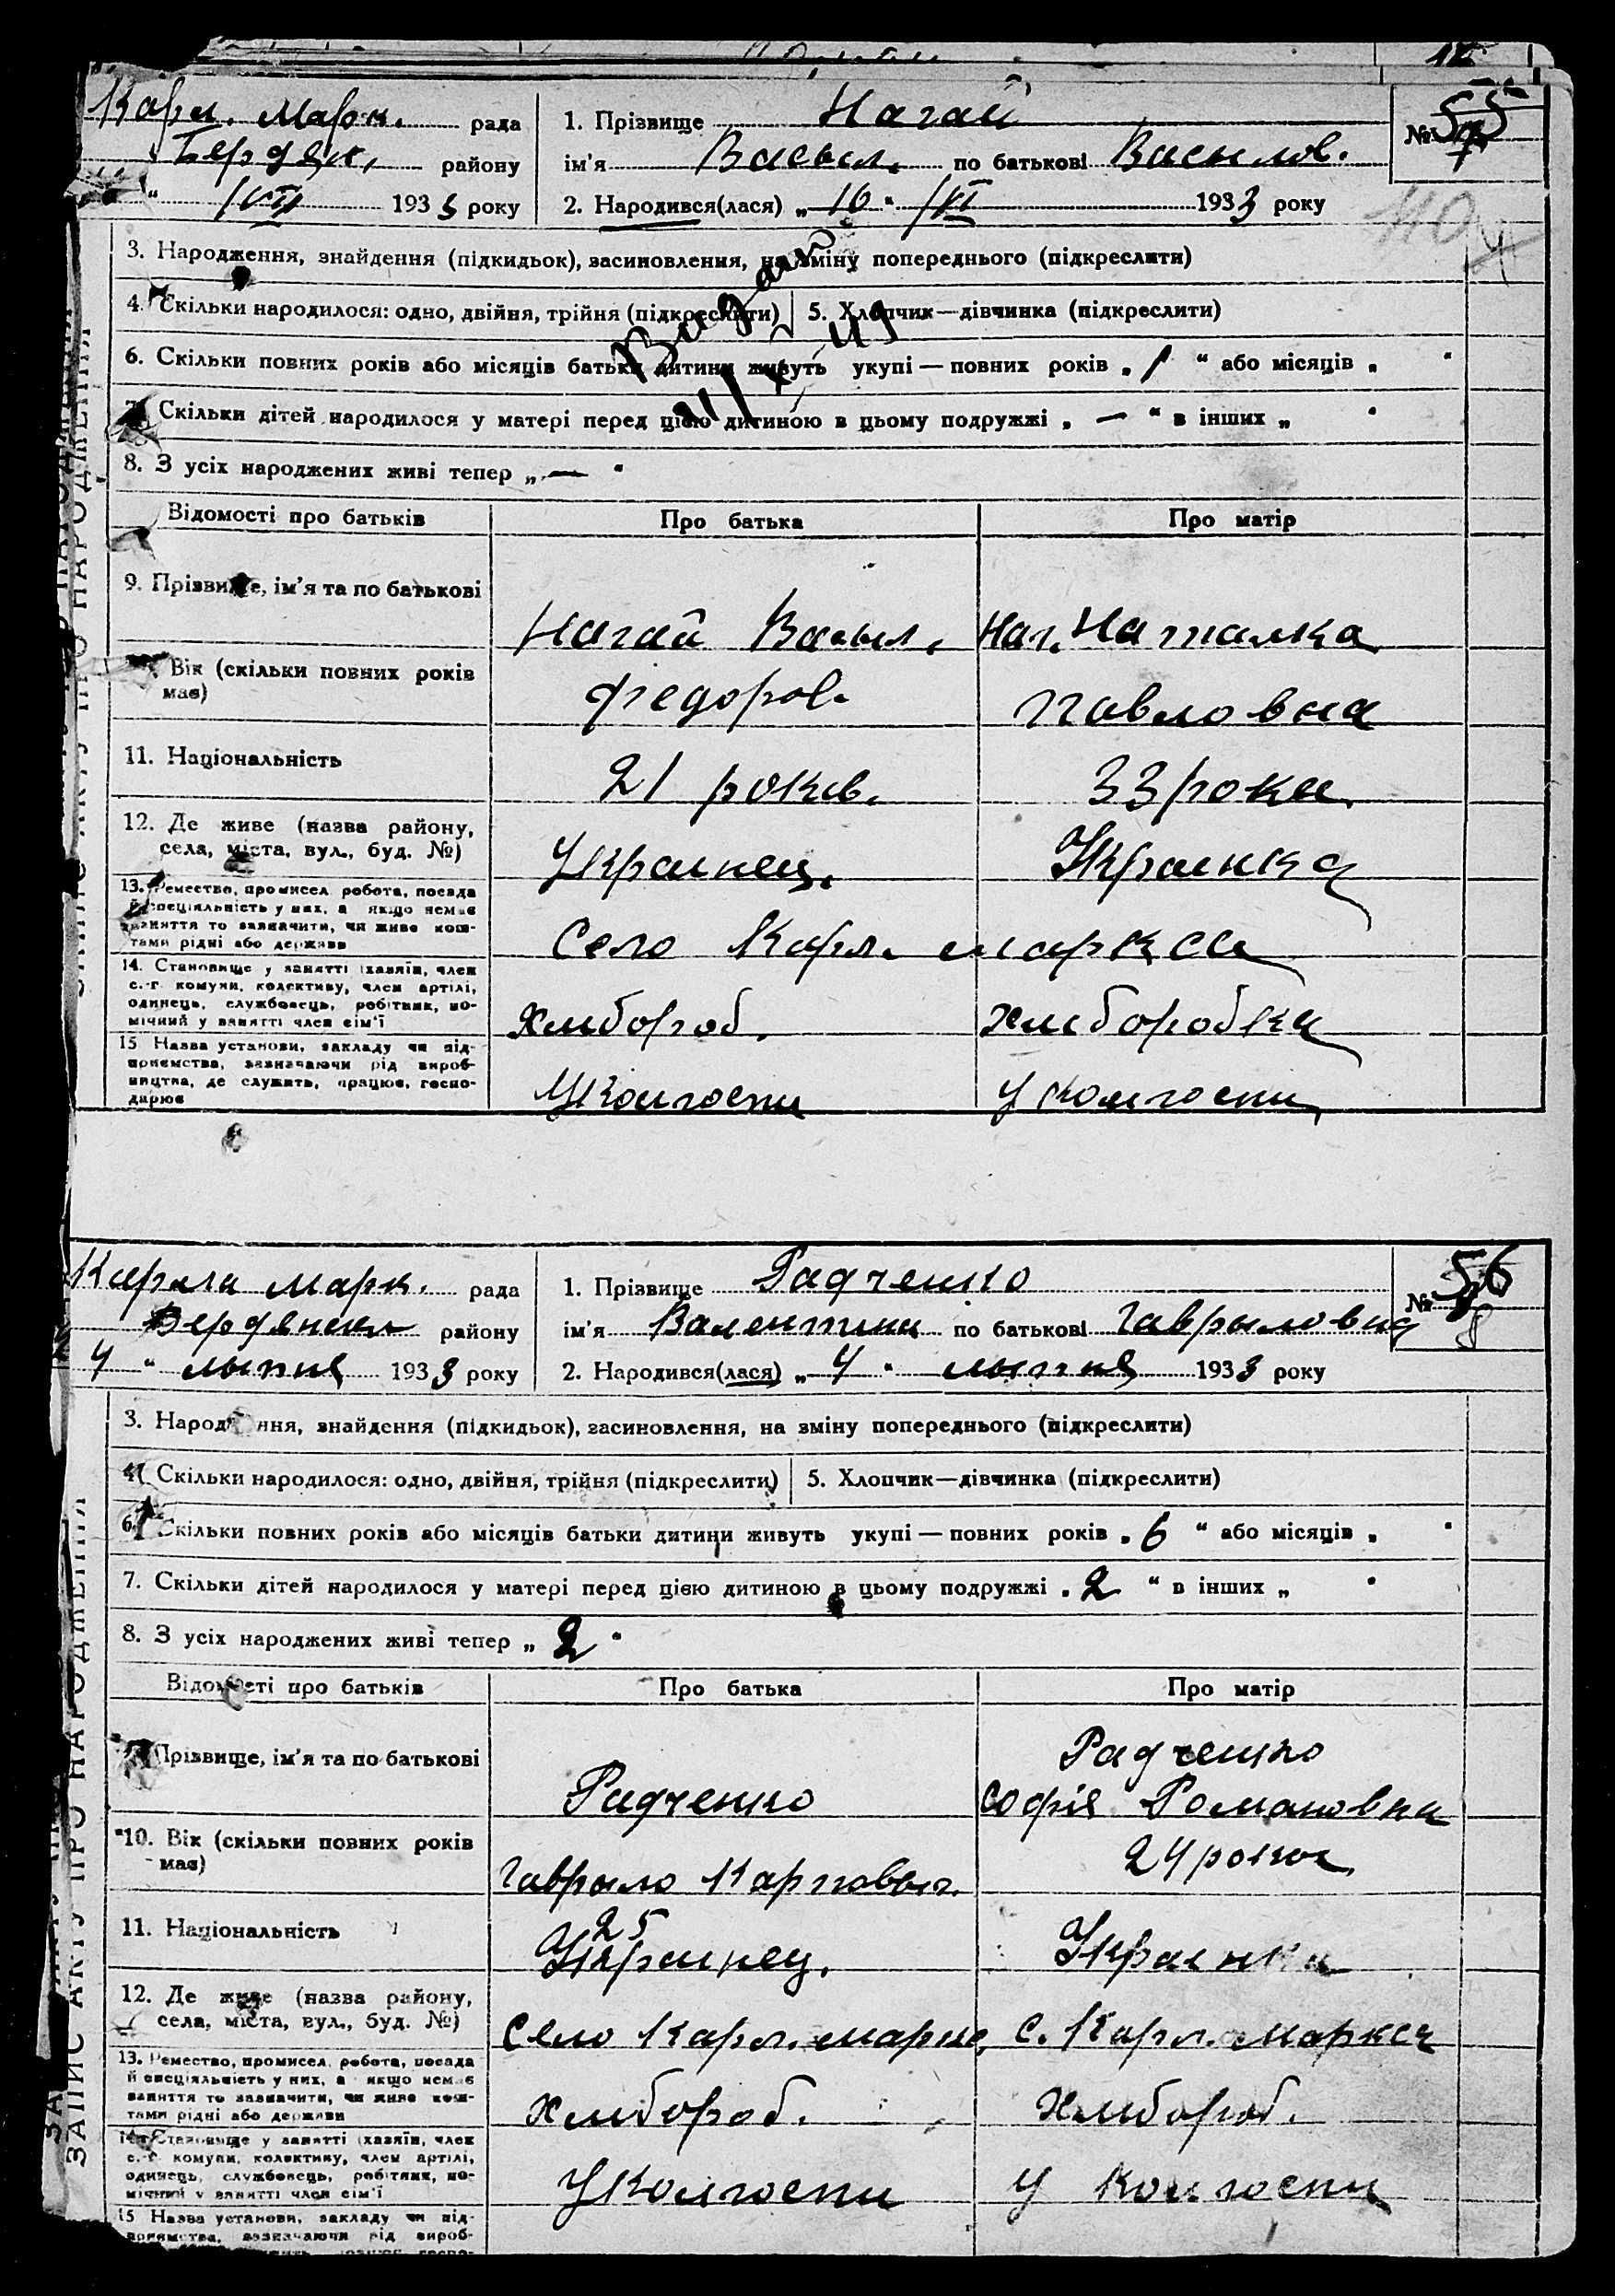 Карл. Марк. рада
Бердян. району
" /VII 1933 року
1. Прізвище Нагай
№ 55
7
ім'я Васыл. по батькові Васылов.
2. Народився(лася) „ 16 " /VI 1933 року
110
3. Народження, знайдення (підкидьок), засиновлення, на зміну попереднього (підкреслити)
4. Скільки народилося: одно, двійня, трійня (підкреслити) 5. Хлопчик—дівчинка (підкреслити)
6. Скільки повних років або місяців батьки дитини живуть укупі — повних років „ 1 " або місяців „ "
7. Скільки дітей народилося у матері перед цією дитиною в цьому подружжі „ — " в інших „ "
8. З усіх народжених живі тепер „ — "
Відомості про батьків Про батька Про матір
9. Прізвище, ім'я та по батькові
Нагай Васыл. Наг. Наталка
Вік (скільки повних років
має)
Федоров. Павловна
11. Національність
21 роков. 33 роки
12. Де живе (назва району,
села, міста, вул., буд. №)
Украинец. Украинка
13. Ремество, промисел, робота, посада
й спеціяльність у них, а якщо немає
заняття то зазначити, чи живе кош-
тами рідні або держави
Село Карл. маркса
14. Становище у занятті (хазяїн, член
с.-г. комуни, колективу, член артілі,
одинець, службовець, робітник, по-
мічний у занятті член сім'ї
хлиbороб. хлиборобка
15 Назва установи, закладу чи під-
приємства, зазначаючи рід вироб-
ництва, де служить, працює, госпо-
дарює
У колгоспи у колгоспи
Карла марк. рада
Бердянськ району
4 " лыпня 1933 року
1. Прізвище Радченко
№ 56
8
ім'я Валентина по батькові Гаврыловна
2. Народився(лася) „ 4 " лыпня 1933 року
3. Народження, знайдення (підкидьок), засиновлення, на зміну попереднього (підкреслити)
4. Скільки народилося: одно, двійня, трійня (підкреслити) 5. Хлопчик—дівчинка (підкреслити)
6. Скільки повних років або місяців батьки дитини живуть укупі — повних років „ 6 " або місяців „ "
7. Скільки дітей народилося у матері перед цією дитиною в цьому подружжі „ 2 " в інших „ "
8. З усіх народжених живі тепер „ 2 "
Відомості про батьків Про батька Про матір
Прізвище, ім'я та по батькові
Радченко
Радченко Софія Романовна
10. Вік (скільки повних років
має)
Гаврыло Карповыч.
24 роки
11. Національність
25
Украинец. Украинка
12. Де живе (назва району,
села, міста, вул., буд. №)
Село Карл. маркс. с. Карл. маркса
13. Ремество, промисел, робота, посада
й спеціяльність у них, а якщо немає
заняття то зазначити, чи живе кош-
тами рідні або держави
хлибороб. хлибороб.
14. Становище у занятті (хазяїн, член
с.-г. комуни, колективу, член артілі,
одинець, службовець, робітник, по-
мічний у занятті член сім'ї
У колгоспи у колгоспи
15 Назва установи, закладу чи під-
приємства, зазначаючи рід вироб-
ЗАПИС АКТУ ПРО НАРОДЖЕННЯ